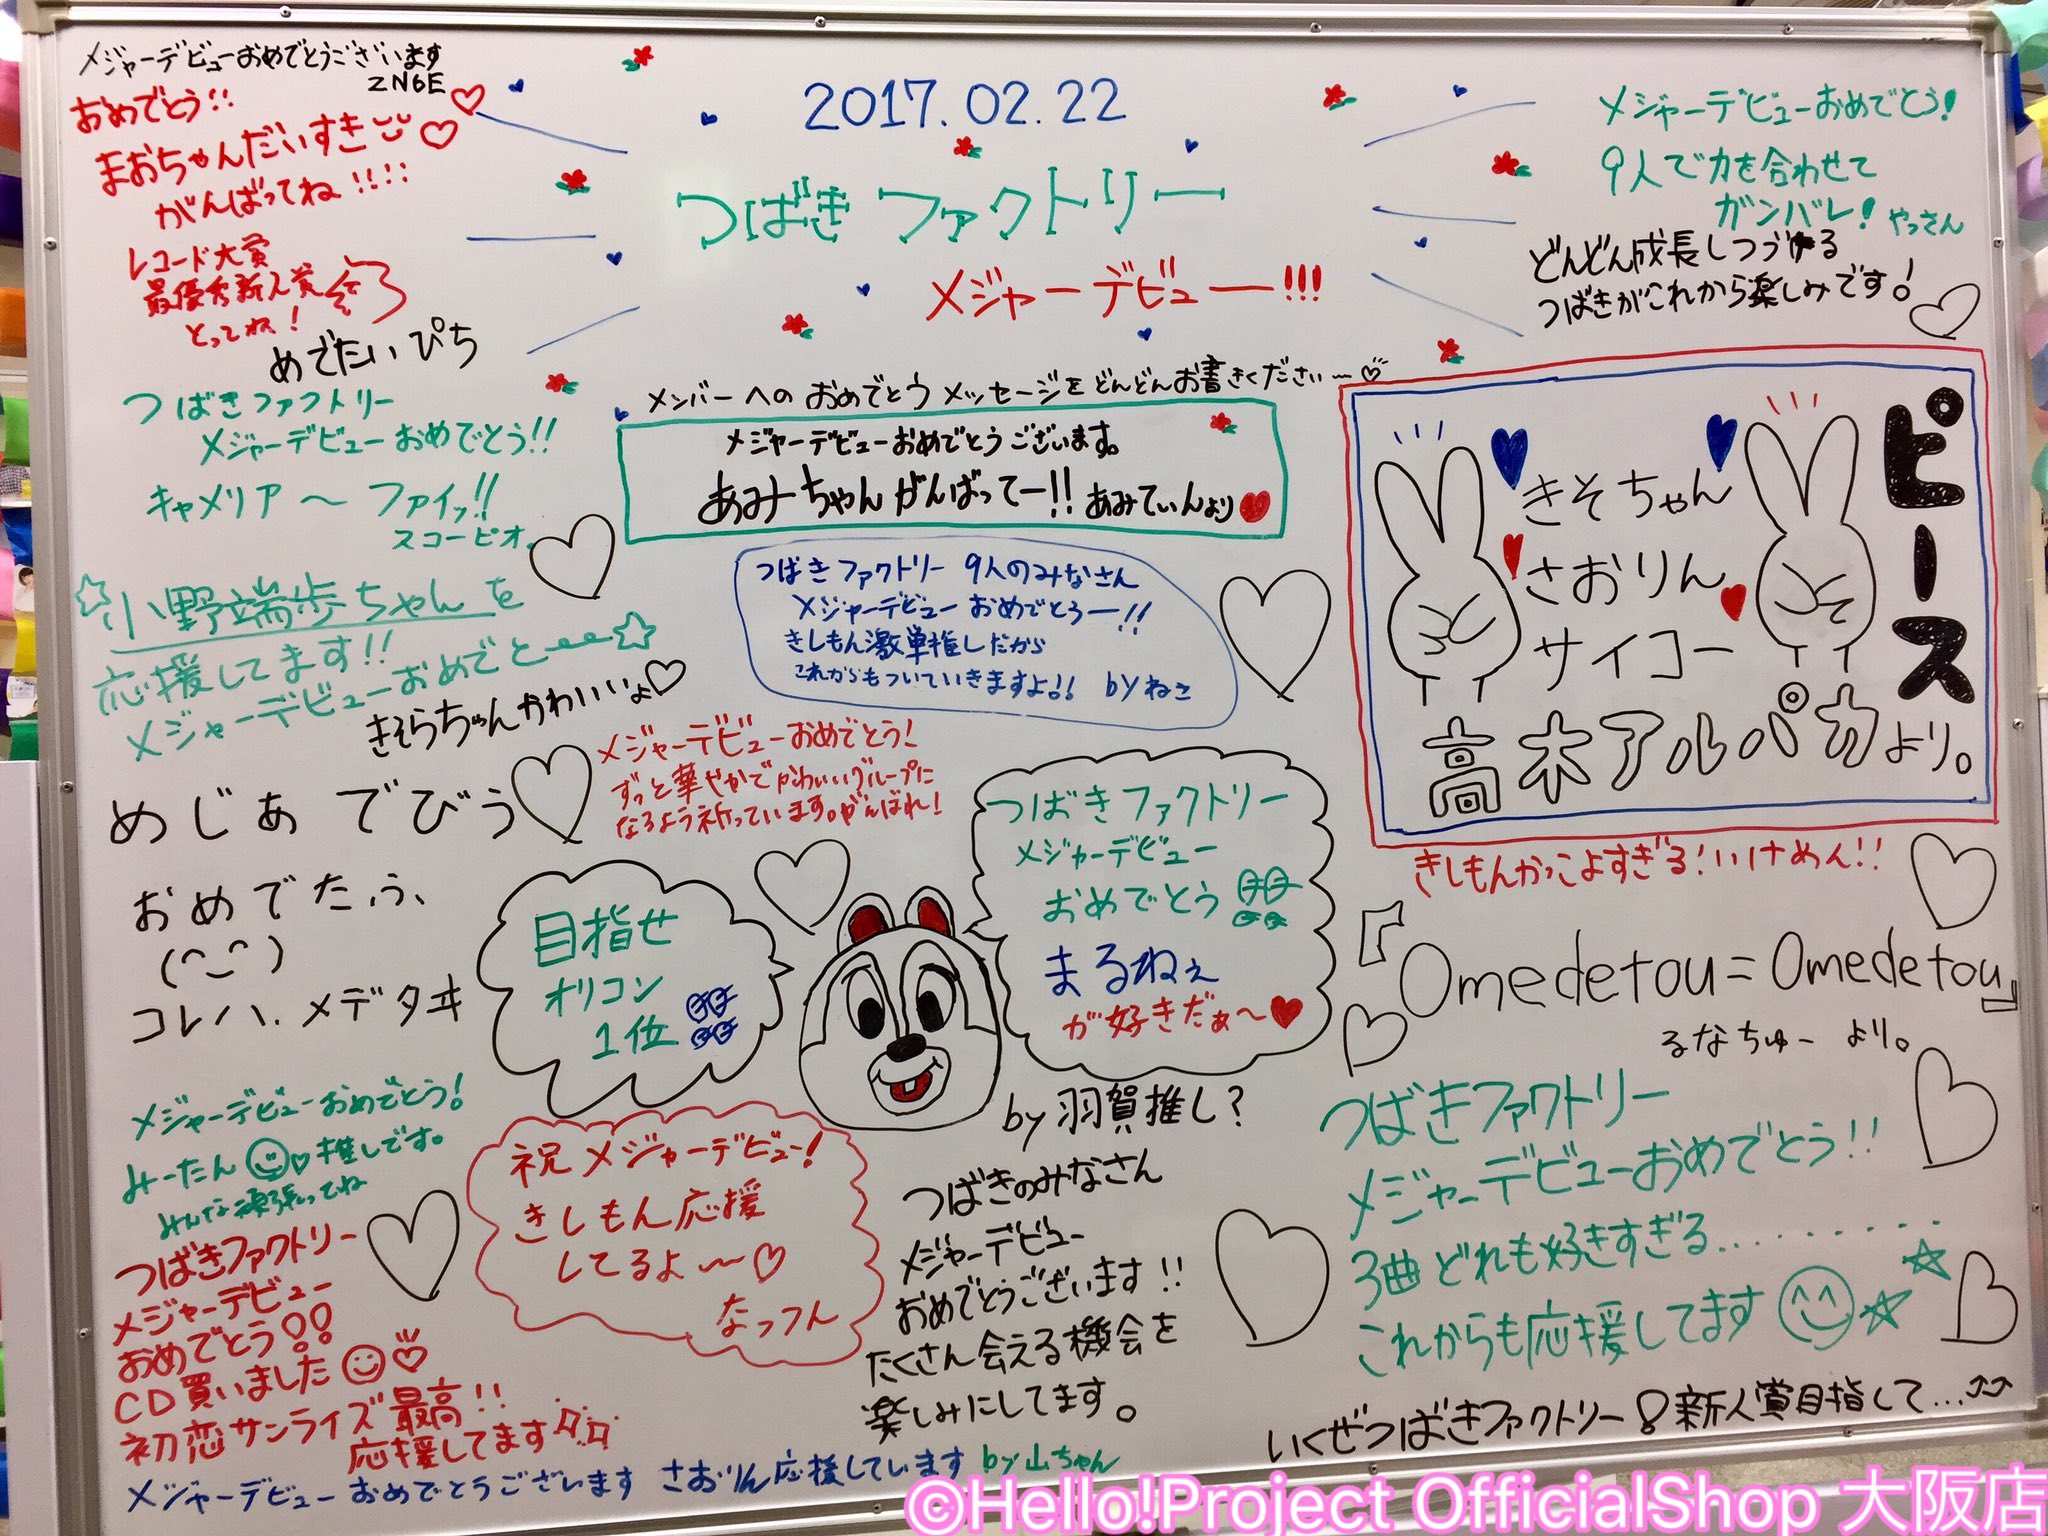 2017.02.22
つばきファクトリー
メジャーデビュー!!!
メンバーへのおめでとうメッセージをどんどんお書きください〜♡
メジャーデビューおめでとうございます
ZN6E
おめでとう!!
まおちゃんだいすき
がんばってね!!!!
レコード大賞
最優秀新人賞
とってね!
めでたいぴち
つばきファクトリー
メジャーデビューおめでとう!!
キャメリア〜ファイッ!!
スコーピオ。
☆小野瑞歩ちゃんを
応援してます!!
メジャーデビューおめでと
きそらちゅんかわいいよ♡
めじぁでびう
おめでたふ、
(^_^)
コレハ、メデタヰ
メジャーデビューおめでとう!
みーたん♡推しです。
みんな頑張ってね
つばきファクトリー
メジャーデビュー
おめでとう!!
CD買いました
初恋サンライズ最高!!
応援してます♫
メジャーデビューおめでとうございます さおりん応援しています by山ちゃん
メジャーデビューおめでとうございます。
あみーちゃんがんばってー!! あみてぃんより♥
つばきファクトリー 9人のみなさん
メジャーデビューおめでとうー!!
きしもん激単推しだから
これからもついていきますよ!! byねこ
メジャーデビューおめでとう!
ずっと華やかでかわいいグループに
なるよう祈っています。がんばれ!
目指せ
オリコン
1位
つばきファクトリー
メジャーデビュー
おめでとう
まるねぇ
が好きだぁ〜♥
by羽賀推し?
祝メジャーデビュー!
きしもん応援
してるよ〜♡
なっつん
つばきのみなさん
メジャーデビュー
おめでとうございます!!
たくさん会える機会を
楽しみにしてます。
メジャーデビューおめでとう!
9人で力を合わせて
ガンバレ! やっさん
どんどん成長しつづける
つばきがこれから楽しみです!
ピース
きそちゃん
さおりん
サイコー
高木アルパカより。
きしもんかっこよすぎる!いけめん!!
『Omedetou=Omedetou』
るなちゅーより。
つばきファクトリー
メジャーデビューおめでとう!!
3曲どれも好きすぎる........
これからも応援してます
いくぜつばきファクトリー!新人賞目指して...
©Hello!Project OfficialShop 大阪店